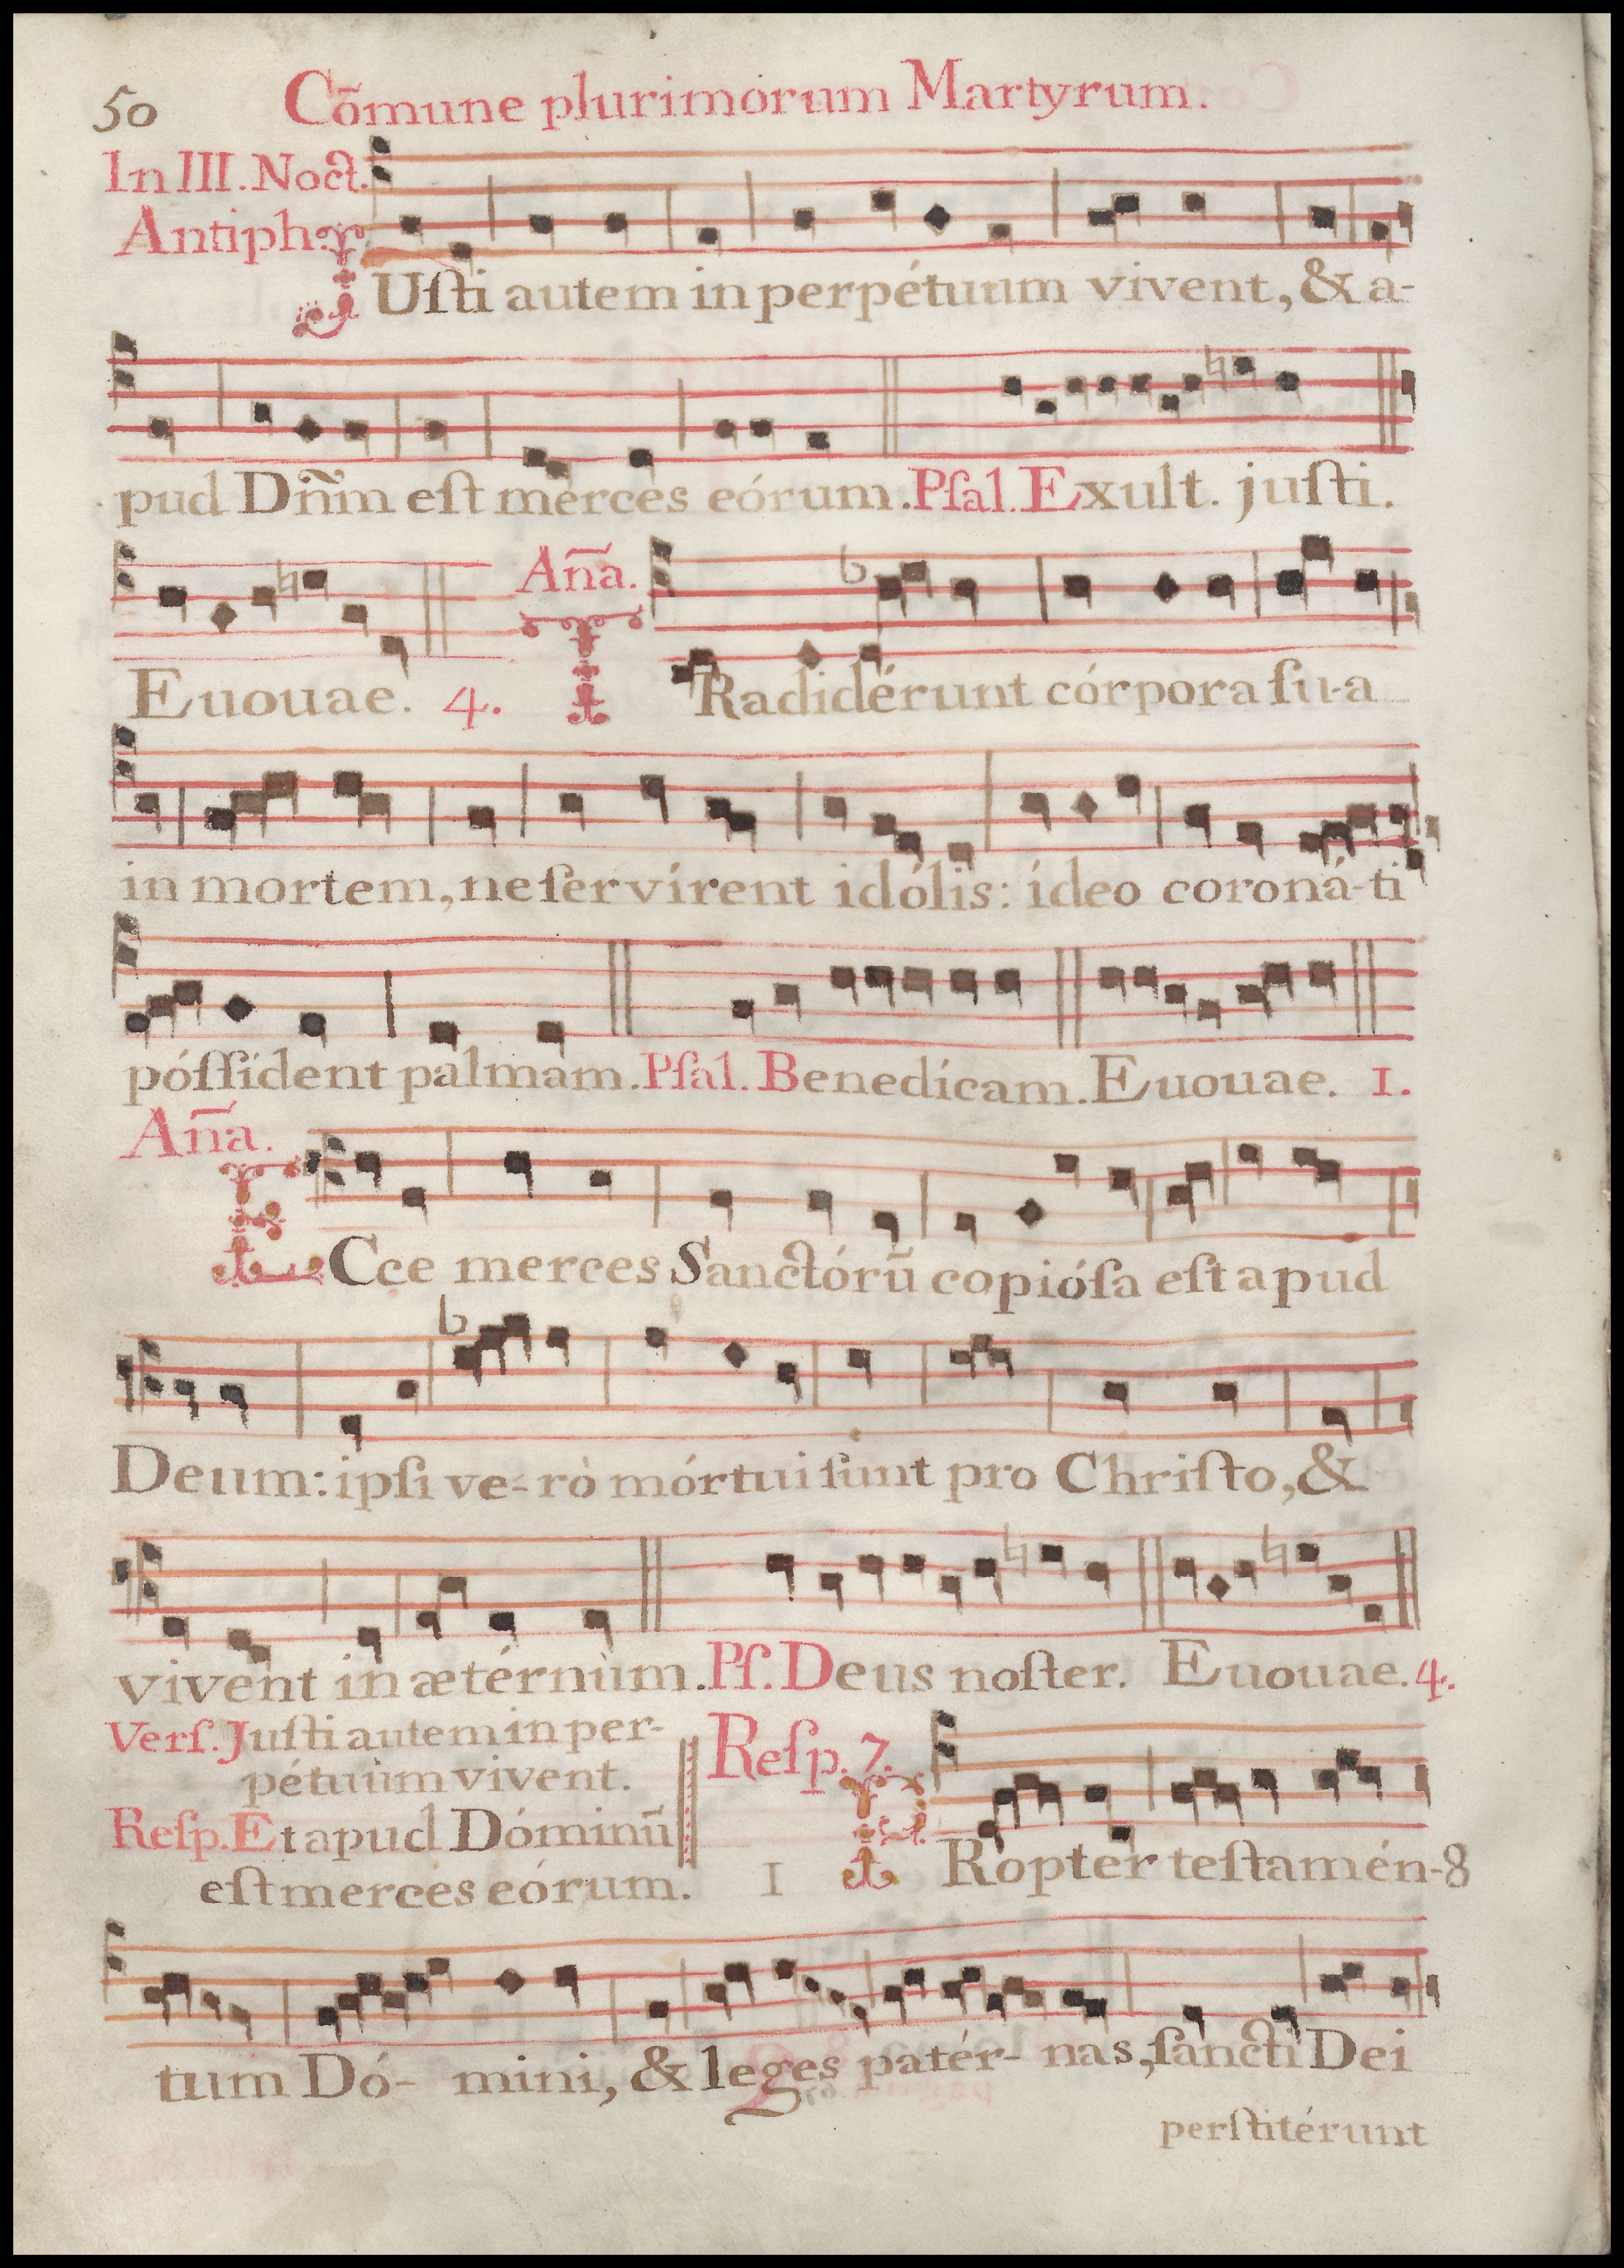 50 Cõmune plurimorum Martyrum.
In III. Noct.
Antiph:
JUſti autem in perpétuum vivent, & a-
pud Dñm eſt merces eórum. Pſal. Exult. juſti.
Euouae. 4. Aña. TRadidérunt córpora ſu-a
in mortem, ne ſervírent idólis: ídeo coroná-ti
póſſident palmam. Pſal. Benedícam. Euouae. 1.
Aña.
ECce merces Sanctórũ copióſa eſt apud
Deum: ipſi ve-rò mórtui ſunt pro Chriſto, &
vivent in ætérnùm. Pſ. Deus noſter. Euouae. 4.
Verſ. Juſti autem in per-
pétuùm vivent.
Reſp. Et apud Dóminũ
eſt merces eórum.
Reſp. 7.
1 PRopter teſtamén- 8
tum Dó- mini, & leges patér- nas, ſancti Dei
perſtitérunt